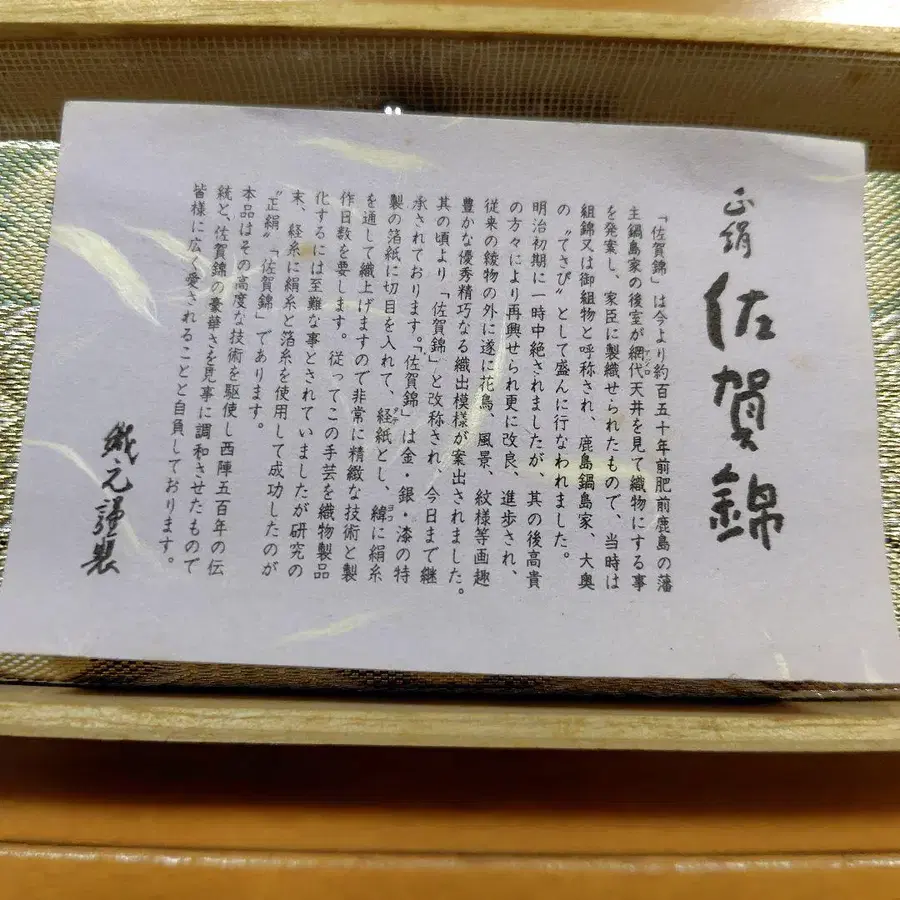 正絹
佐賀錦
「佐賀錦」は今より約百五十年前肥前鹿島の藩
主鍋島家の後室が網代天井を見て織物にする事
を発案し、家臣に製織せられたもので、当時は
組錦又は御組物と呼称され、鹿島鍋島家、大奥
の〝てさび〟として盛んに行なわれました。
明治初期に一時中絶されましたが、其の後高貴
の方々により再興せられ更に改良、進歩され、
従来の綾物の外に遂に花鳥、風景、紋様等画趣
豊かな優秀精巧なる織出模様が案出されました。
其の頃より「佐賀錦」と改称され、今日まで継
承されております。「佐賀錦」は金・銀・漆の特
製の箔紙に切目を入れて、経紙とし、緯に絹糸
を通して織上げますので非常に精緻な技術と製
作日数を要します。従ってこの手芸を織物製品
化するには至難な事とされていましたが研究の
末、経糸に絹糸と箔糸を使用して成功したのが
〝正絹〟「佐賀錦」であります。
本品はその高度な技術を駆使し西陣五百年の伝
統と、佐賀錦の豪華さを見事に調和させたもので
皆様に広く愛されることと自負しております。
織元謹製